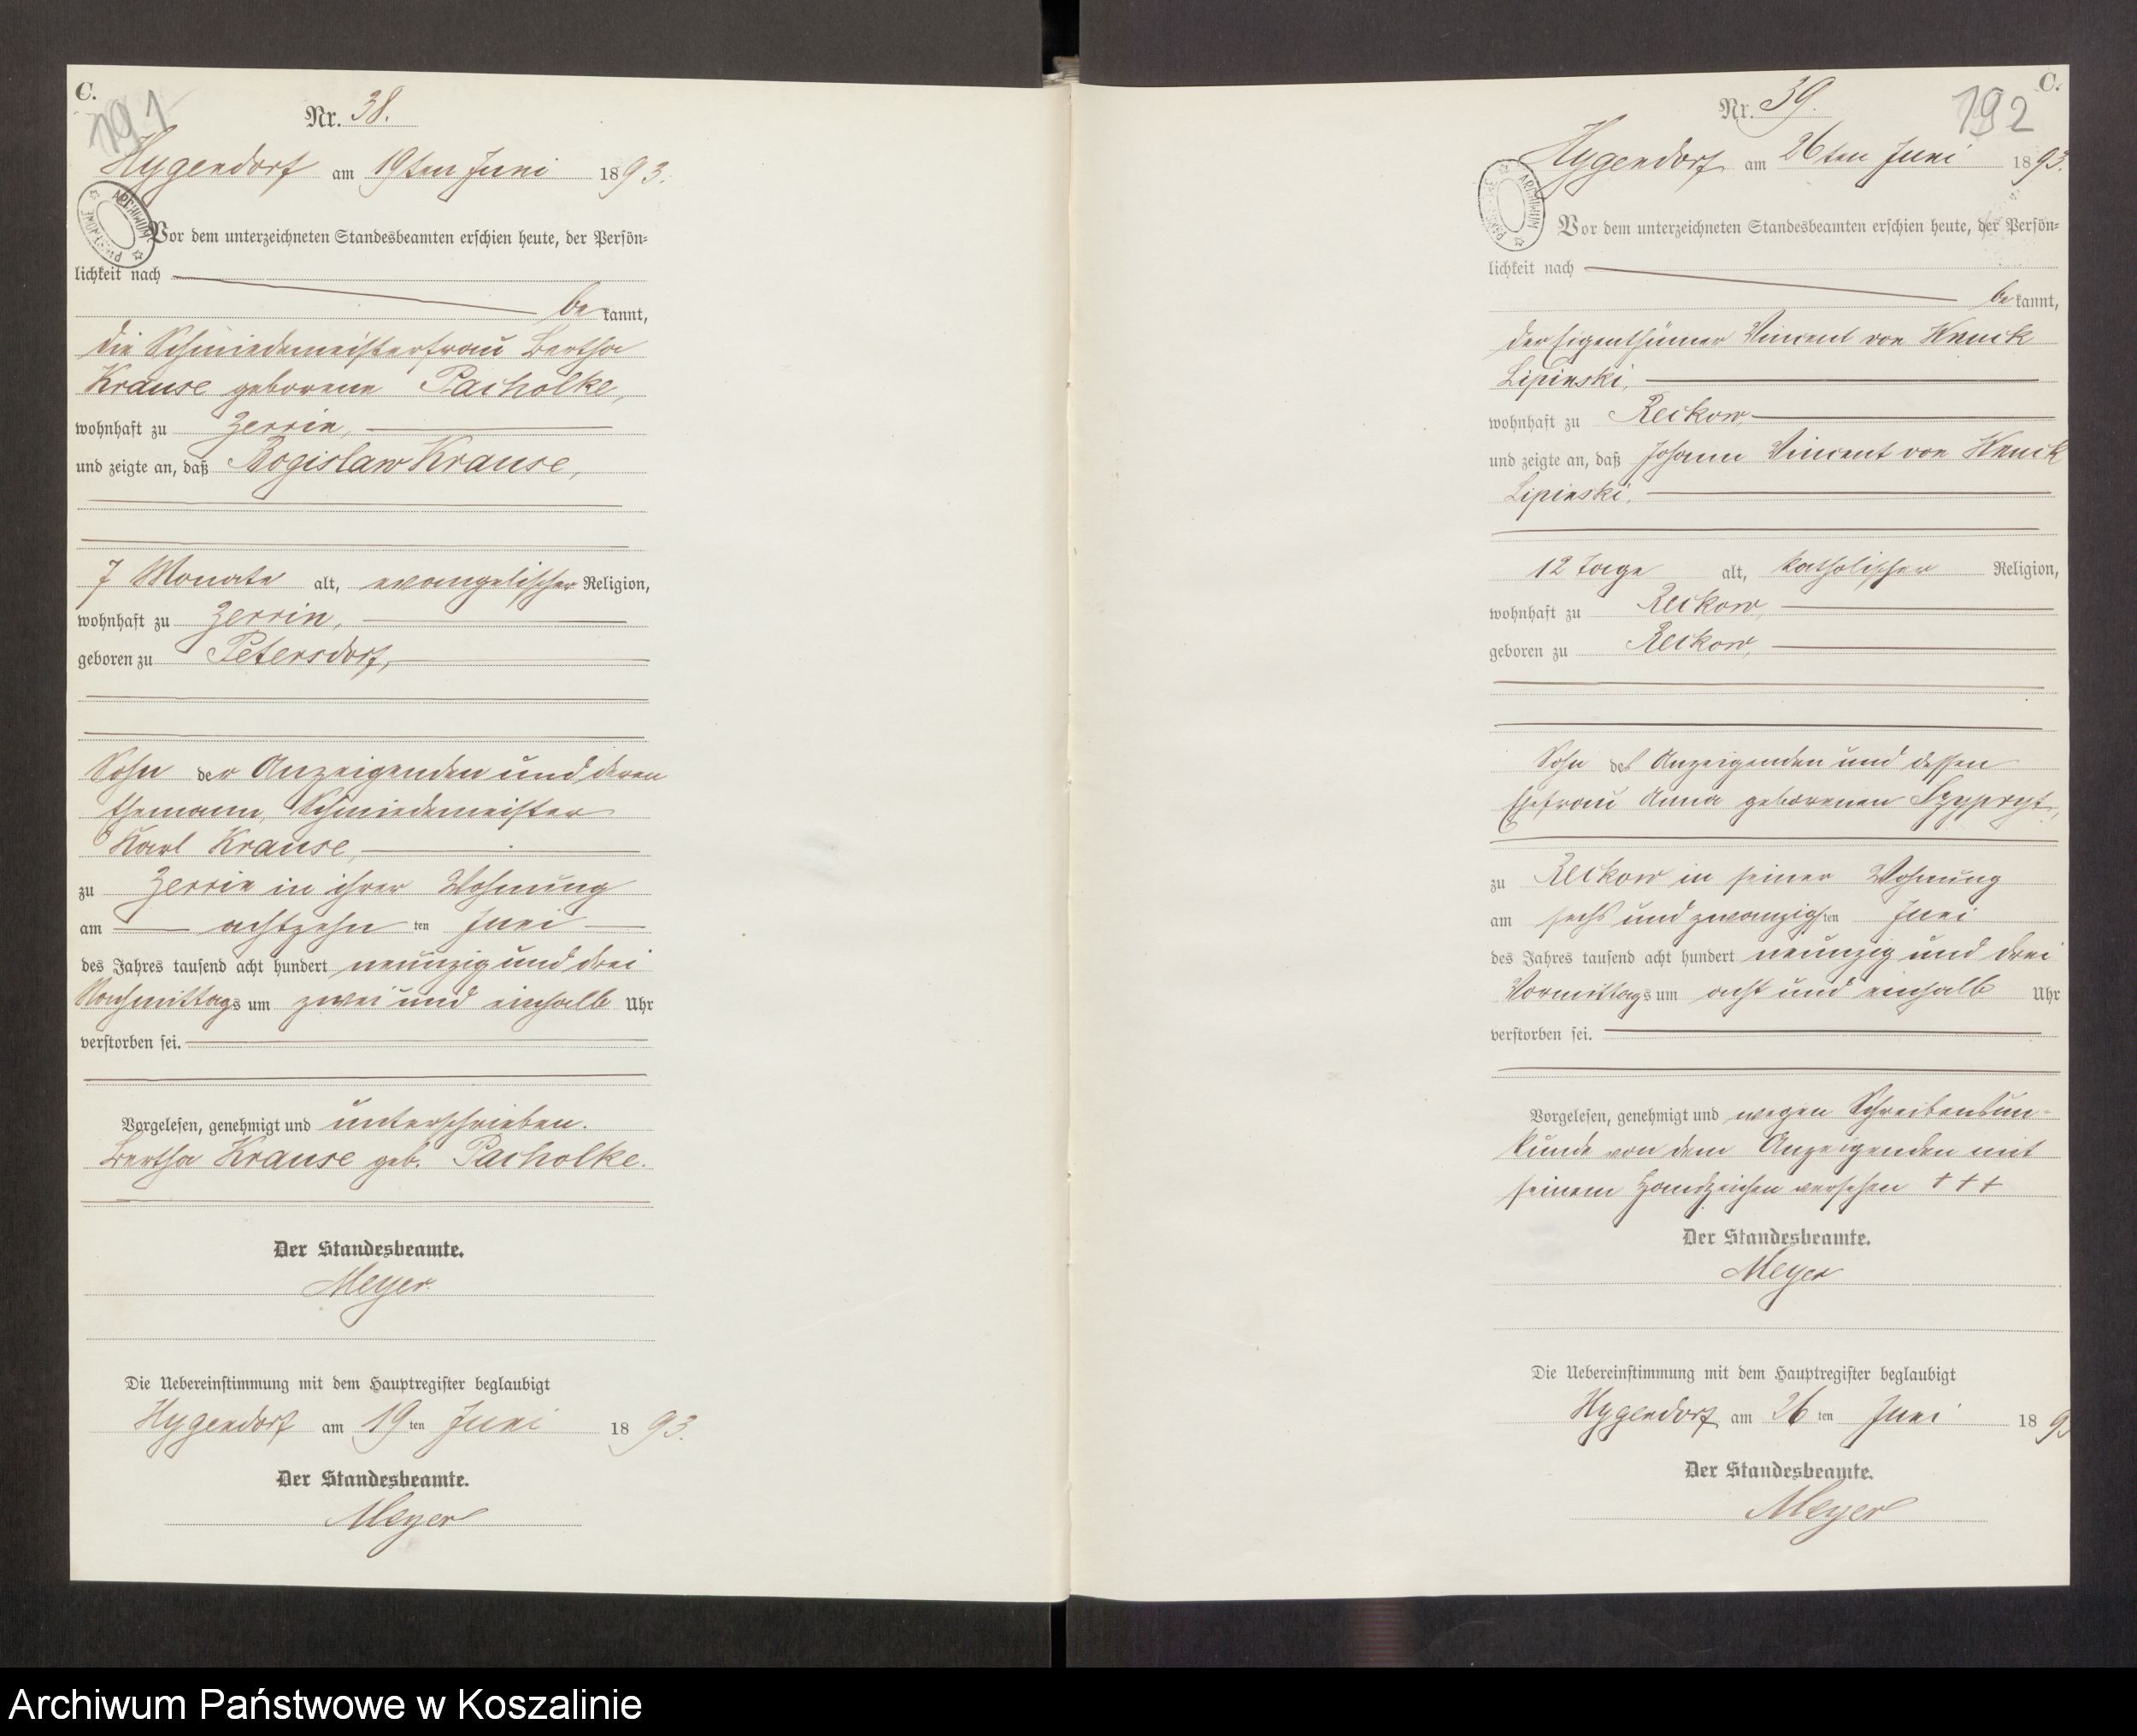 C.
191
Nr. 38.
Hygendorf am 19ten Juni 1893.
ARCHIWUM PAŃSTWOWE
Vor dem unterzeichneten Standesbeamten erschien heute, der Persön-
lichkeit nach
be kannt,
die Schmiedemeisterfrau Bertha
Krause geborene Pacholke,
wohnhaft zu Zerrin,
und zeigte an, daß Bogislaw Krause,
7 Monate alt, evangelischer Religion,
wohnhaft zu Zerrin,
geboren zu Petersdorf,
Sohn der Anzeigenden und deren
Ehemann, Schmiedemeister
Karl Krause,
zu Zerrin in ihrer Wohnung
am achtzehn ten Juni
des Jahres tausend acht hundert neunzig und drei
Nachmittags um zwei und einhalb Uhr
verstorben sei.
Vorgelesen, genehmigt und unterschrieben.
Bertha Krause geb. Pacholke.
Der Standesbeamte.
Meyer.
Die Uebereinstimmung mit dem Hauptregister beglaubigt
Hygendorf am 19 ten Juni 18 93.
Der Standesbeamte.
Meyer
C.
192
Nr. 39.
Hygendorf am 26ten Juni 1893.
ARCHIWUM PAŃSTWOWE
Vor dem unterzeichneten Standesbeamten erschien heute, der Persön-
lichkeit nach
be kannt,
der Eigenthümer Vincent von
Lipinski,
wohnhaft zu Reckow
und zeigte an, daß Johann Vincent von
Lipinski,
12 Tage alt, katholischer Religion,
wohnhaft zu Reckow,
geboren zu Reckow,
Sohn des Anzeigenden und dessen
Ehefrau Anna geborenen
zu Reckow in seiner Wohnung
am sechs und zwanzig ten Juni
des Jahres tausend acht hundert neunzig und drei
Vormittags um acht und einhalb Uhr
verstorben sei.
Vorgelesen, genehmigt und wegen Schreibensun-
kunde von dem Anzeigenden mit
seinem Handzeichen versehen + + +
Der Standesbeamte.
Meyer
Die Uebereinstimmung mit dem Hauptregister beglaubigt
Hygendorf am 26 ten Juni 18 93
Der Standesbeamte.
Meyer
Archiwum Państwowe w Koszalinie